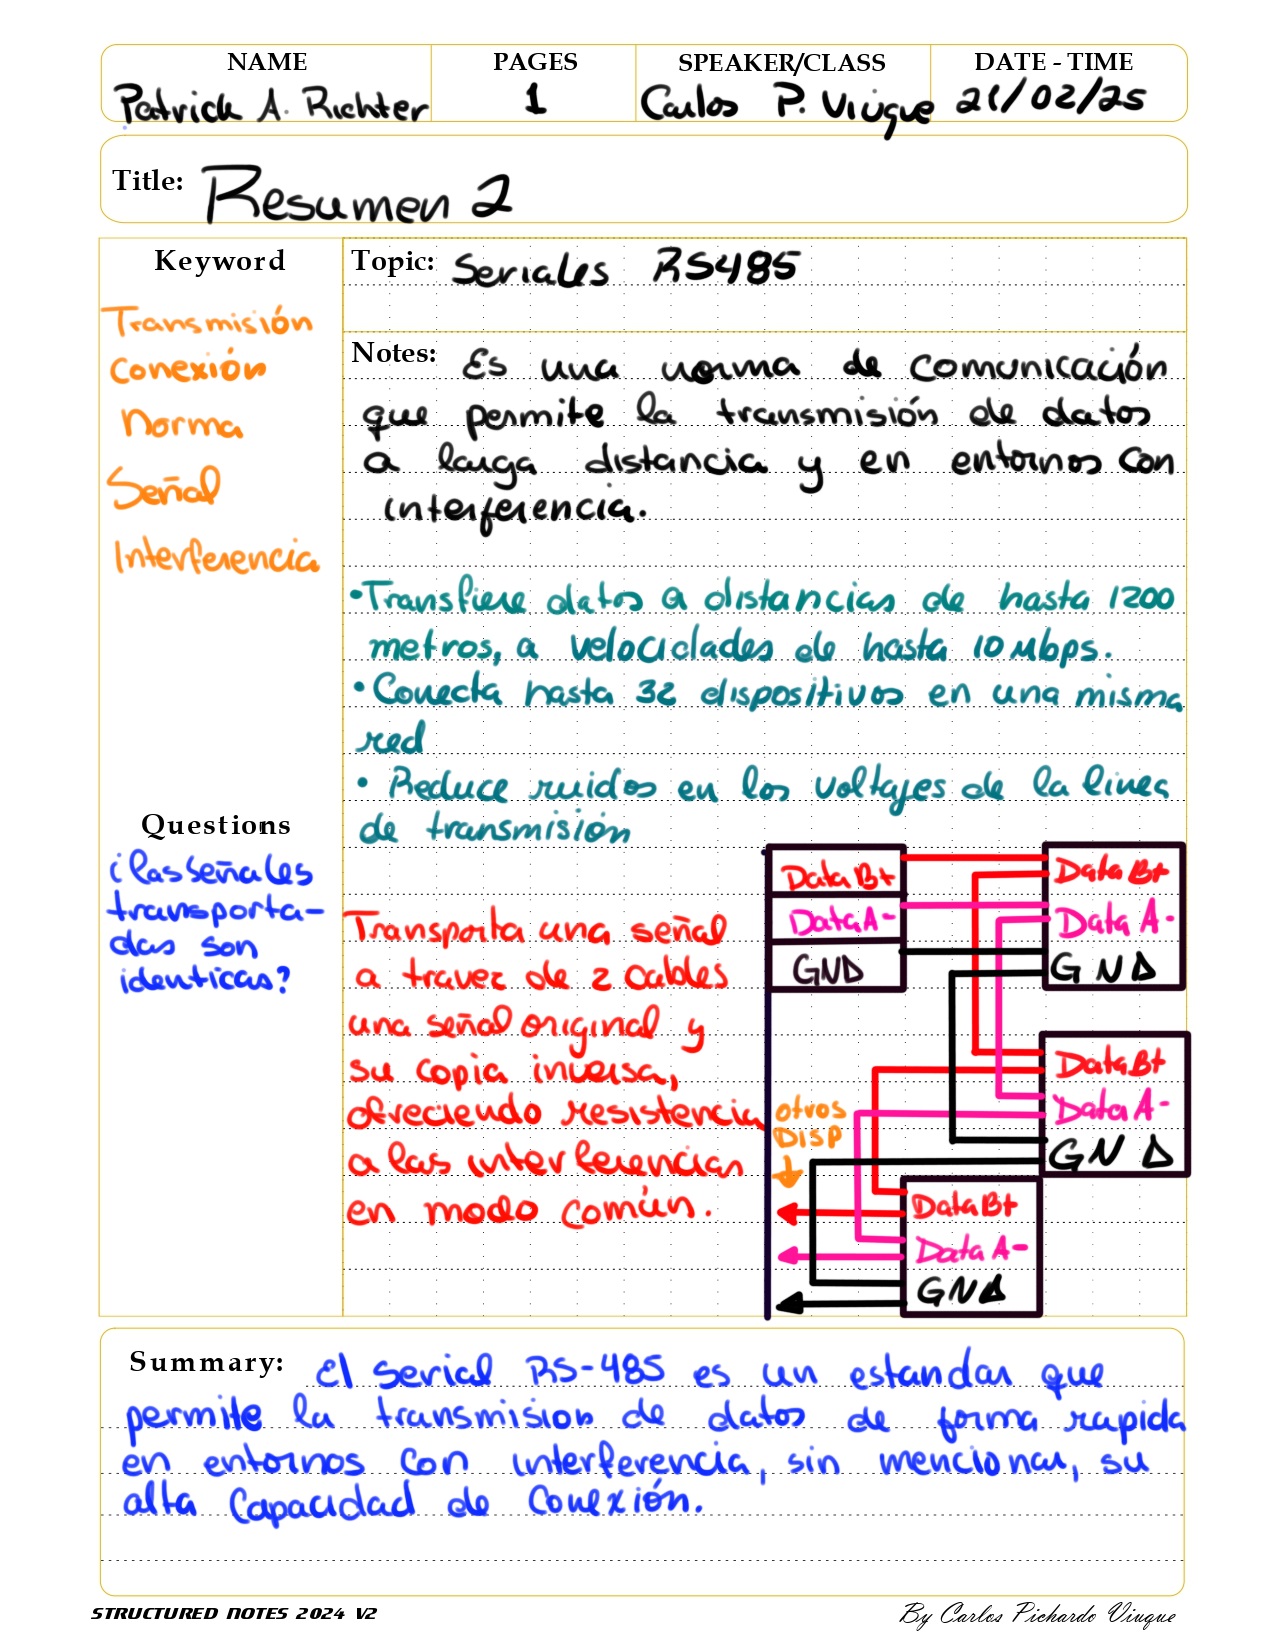 NAME PAGES SPEAKER/CLASS DATE - TIME
Patrick A. Richter 1 Carlos P. Viuque 21/02/25
Title: Resumen 2
Keyword
Transmisión
Conexión
Norma
Señal
Interferencia
Questions
¿las señales
transporta-
das son
identicas?
Topic: Seriales RS485
Notes: Es una norma de comunicación
que permite la transmisión de datos
a larga distancia y en entornos con
interferencia.
•Transfiere datos a distancias de hasta 1200
metros, a velocidades de hasta 10 Mbps.
• Conecta hasta 32 dispositivos en una misma
red
• Reduce ruidos en los voltajes de la linea
de transmisión
Transporta una señal
a travez de 2 cables
una señal original y
su copia inversa,
ofreciendo resistencia
a las interferencias
en modo común.
Data B+
Data A-
GND
Data B+
Data A-
GND
Data B+
Data A-
GND
otros
DISP
Data B+
Data A-
GND
Summary: el serial RS-485 es un estandar que
permite la transmision de datos de forma rapida
en entornos con interferencia, sin mencionar, su
alta capacidad de conexión.
STRUCTURED NOTES 2024 V2
By Carlos Pichardo Viuque